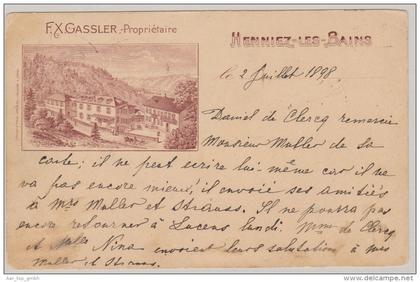 F.X. GASSLER,-Propriétaire
HENNIEZ-LES-BAINS
le 2 Juillet 1898.
Daniel de Clercq remercie
Monsieur Muller de sa
carte; il ne peut ecrire lui-même car il ne
va pas encore mieux; il envoie ses amitiés
à Mrs Muller et Strauss. Il ne pourra pas
encore retourner à Lucens lundi. Mme de Clercq
et Mlle Nina envoient leurs salutations à Mrs
Muller et Strauss.